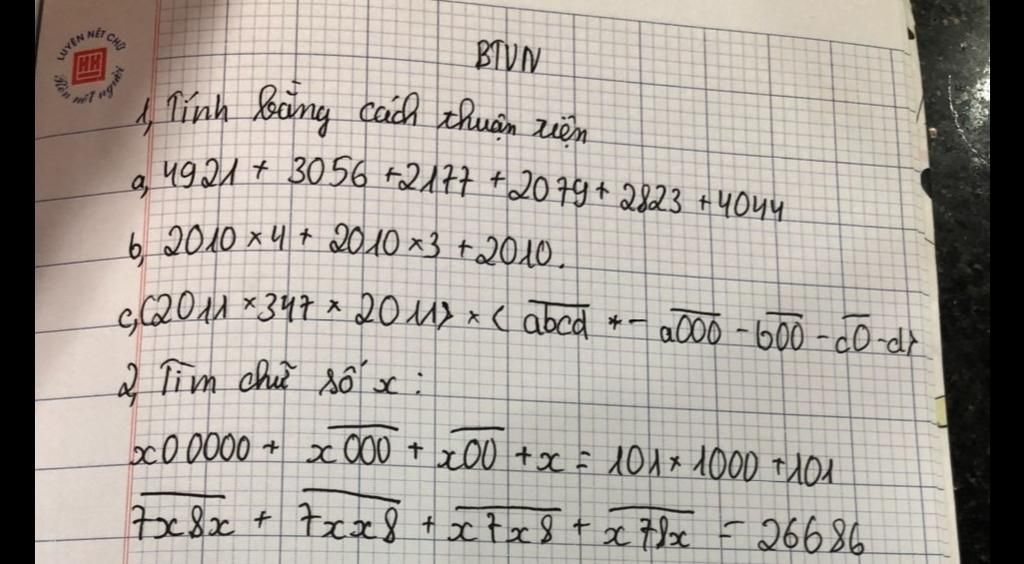 LUYỆN NÉT CHỮ
HK
Rèn nết người
BTVN
1, Tính bằng cách thuận tiện
a, 4921 + 3056 + 2177 + 2079 + 2823 + 4044
b, 2010 × 4 + 2010 × 3 + 2010.
c, (2011 × 347 × 2011) × ( abcd + - a000 - b00 - c0 - d)
2, Tìm chữ số x :
x00000 + x000 + x00 + x = 101 × 1000 + 101
7x8x + 7xx8 + x7x8 + x78x = 26686